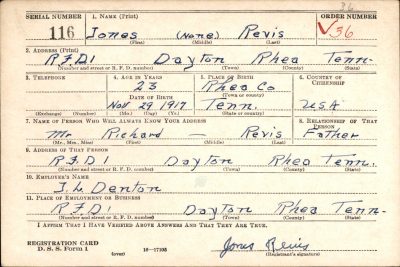 36
SERIAL NUMBER 1. NAME (Print) ORDER NUMBER
116 Jones (None) Revis V36
(First) (Middle) (Last)
2. ADDRESS (Print)
R.F.D1 Dayton Rhea Tenn-
(Number and street or R. F. D. number) (Town) (County) (State)
3. TELEPHONE 4. AGE IN YEARS 5. PLACE OF BIRTH 6. COUNTRY OF CITIZENSHIP
23 Rhea Co
DATE OF BIRTH (Town or county)
Nov 29 1917 Tenn. USA
(Exchange) (Number) (Mo.) (Day) (Yr.) (State or country)
7. NAME OF PERSON WHO WILL ALWAYS KNOW YOUR ADDRESS 8. RELATIONSHIP OF THAT PERSON
Mr Richard — Revis Father
(Mr., Mrs., Miss) (First) (Middle) (Last)
9. ADDRESS OF THAT PERSON
R.F.D1 Dayton Rhea Tenn.
(Number and street or R. F. D. number) (Town) (County) (State)
10. EMPLOYER'S NAME
I. L. Denton
11. PLACE OF EMPLOYMENT OR BUSINESS
R.F.D1 Dayton Rhea Tenn-
(Number and street or R. F. D. number) (Town) (County) (State)
I AFFIRM THAT I HAVE VERIFIED ABOVE ANSWERS AND THAT THEY ARE TRUE.
REGISTRATION CARD
D. S. S. Form 1 16—17105 Jones Revis
(Registrant's signature)